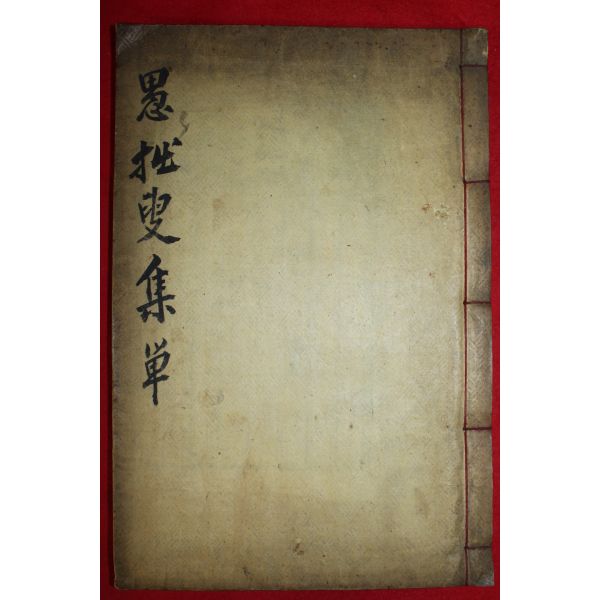 愚拙叟集単